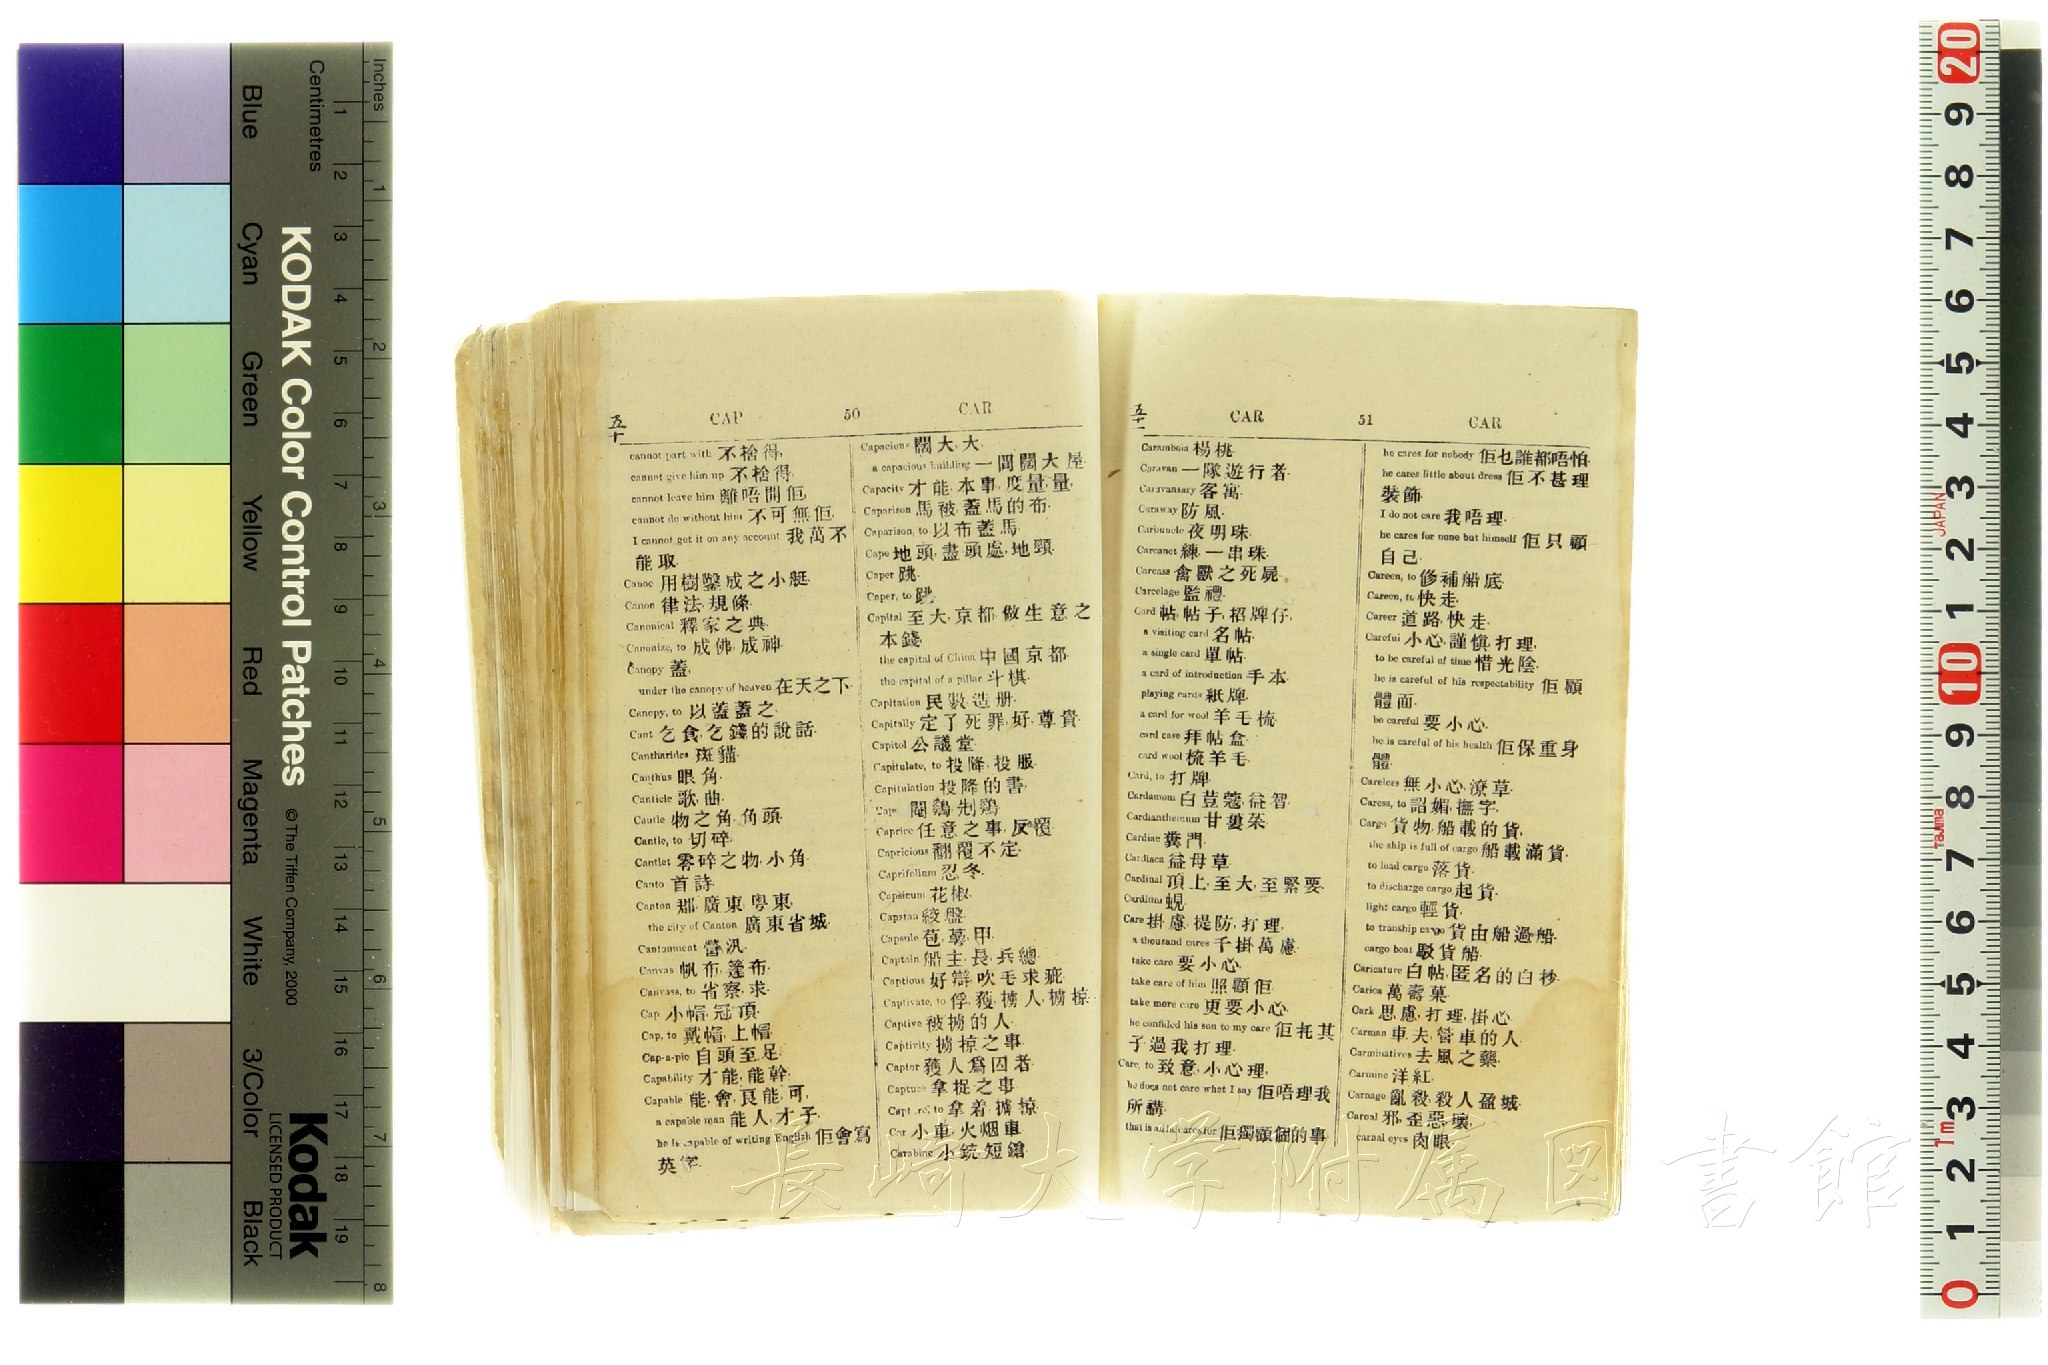 Inches
Centimetres
1 2 3 4 5 6 7 8
1 2 3 4 5 6 7 8 9 10 11 12 13 14 15 16 17 18 19
Blue
Cyan
Green
Yellow
Red
Magenta
White
3/Color
Black
KODAK Color Control Patches
© The Tiffen Company, 2000
Kodak
LICENSED PRODUCT
五十
CAP 50 CAR
cannot part with 不捨得.
cannot give him up 不捨得.
cannot leave him 離唔開佢.
cannot do without him 不可無佢.
I cannot get it on any account 我萬不
能取.
Canoe 用樹鑿成之小艇.
Canon 律法, 規條.
Canonical 釋家之典.
Canonize, to 成佛, 成神.
Canopy 蓋.
under the canopy of heaven 在天之下.
Canopy, to 以蓋蓋之.
Cant 乞食, 乞錢的說話.
Cantharides 斑貓.
Canthus 眼角.
Canticle 歌, 曲.
Cantle 物之角, 角頭.
Cantle, to 切碎.
Cantlet 零碎之物, 小角.
Canto 首詩.
Canton 郡, 廣東, 粵東.
the city of Canton 廣東省城.
Cantonment 營汛.
Canvas 帆布, 篷布.
Canvass, to 省察, 求.
Cap 小帽, 冠, 頂.
Cap, to 戴帽, 上帽.
Cap-a-pie 自頭至足.
Capability 才能, 能幹.
Capable 能, 會, 良能, 可.
a capable man 能人, 才子.
he is capable of writing English 佢會寫
英字.
Capacious 闊大, 大.
a capacious building 一間闊大屋.
Capacity 才能, 本事, 度量, 量.
Caparison 馬被, 蓋馬的布.
Caparison, to 以布蓋馬.
Cape 地頭, 盡頭處, 地頸.
Caper 跳.
Caper, to 跳.
Capital 至大, 京都, 做生意之
本錢.
the capital of China 中國京都.
the capital of a pillar 斗棋.
Capitation 民數造册.
Capitally 定了死罪, 好, 尊貴.
Capitol 公議堂.
Capitulate, to 投降, 投服.
Capitulation 投降的書.
Capon 閹鷄, 刣鷄.
Caprice 任意之事, 反覆.
Capricious 翻覆不定.
Caprifolium 忍冬.
Capsicum 花椒.
Capstan 絞盤.
Capsule 苞, 莩, 甲.
Captain 船主, 長, 兵總.
Captious 好辯, 吹毛求疵.
Captivate, to 俘, 獲, 擄人, 擄掠.
Captive 被擄的人.
Captivity 擄掠之事.
Captor 獲人爲囚者.
Capture 拿捉之事.
Capture, to 拿着, 擄掠.
Car 小車, 火烟車.
Carabine 小銃, 短鎗.
五十一
CAR 51 CAR
Caramboia 楊桃.
Caravan 一隊遊行者.
Caravansary 客寓.
Caraway 防風.
Carbuncle 夜明珠.
Carcanet 練, 一串珠.
Carcass 禽獸之死屍.
Carcelage 監禮.
Card 帖, 帖子, 招牌仔.
a visiting card 名帖.
a single card 單帖.
a card of introduction 手本.
playing cards 紙牌.
a card for wool 羊毛梳.
card case 拜帖盒.
card wool 梳羊毛.
Card, to 打牌.
Cardamom 白荳蔻, 益智.
Cardiac 糞門.
Cardiaca 益母草.
Cardinal 頂上, 至大, 至緊要.
Cardium 蜆.
Care 掛慮, 提防, 打理.
a thousand cares 千掛萬慮.
take care 要小心.
take care of him 照顧佢.
take more care 更要小心.
he confided his son to my care 佢托其
子過我打理.
Care, to 致意, 小心理.
he does not care what I say 佢唔理我
所講.
that is all he cares for 佢獨顧個的事.
he cares for nobody 佢也誰都唔怕.
he cares little about dress 佢不甚理
裝飾.
I do not care 我唔理.
he cares for none but himself 佢只顧
自己.
Careen, to 修補船底.
Careen, to 快走.
Career 道路, 快走.
Careful 小心, 謹愼, 打理.
to be careful of time 惜光陰.
he is careful of his respectability 佢顧
體面.
be careful 要小心.
he is careful of his health 佢保重身
體.
Careless 無小心, 潦草.
Caress, to 諂媚, 撫字.
Cargo 貨物, 船載的貨.
the ship is full of cargo 船載滿貨.
to load cargo 落貨.
to discharge cargo 起貨.
light cargo 輕貨.
to tranship cargo 貨由船過船.
cargo boat 駁貨船.
Caricature 白帖, 匿名的白抄.
Carica 萬壽菓.
Cark 思慮, 打理, 掛心.
Carman 車夫, 管車的人.
Carminatives 去風之藥.
Carmine 洋紅.
Carnage 亂殺, 殺人盈城.
Carnal 邪, 歪, 惡, 壞.
carnal eyes 肉眼.
長崎大学附属図書館
20 9 8 7 6 5 4 3 2 1 10 9 8 7 6 5 4 3 2 1 0
JAPAN
Tajima
1m